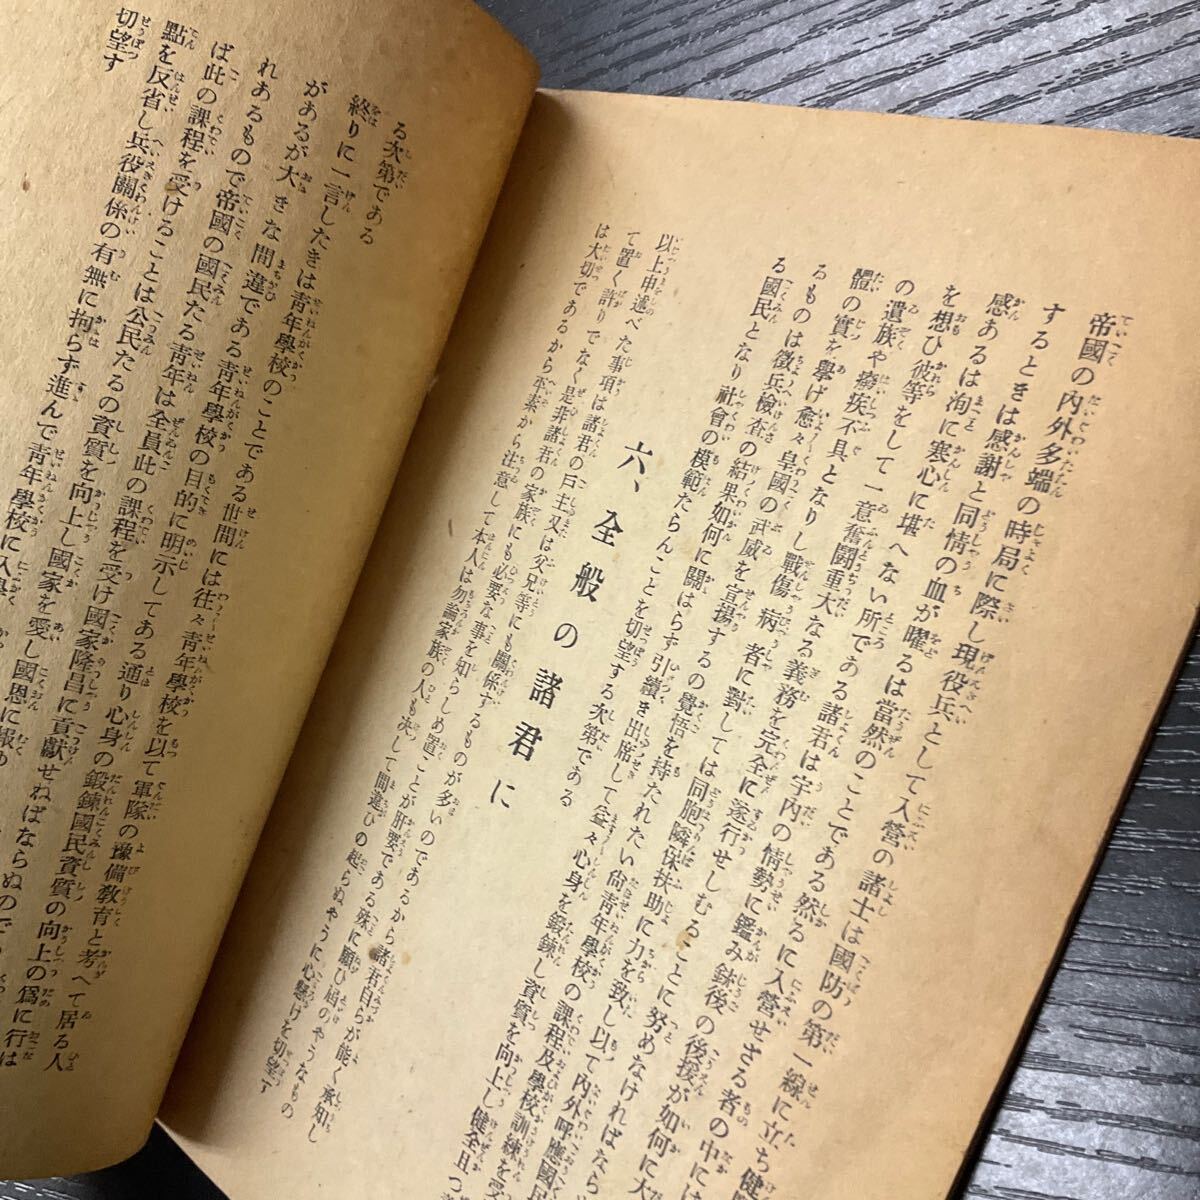 帝國の内外多端の時局に際し現役兵として入營の諸士は國防の第一線に立ち健
するときは感謝と同情の血が曜るは當然のことである然るに入營せざる者の中には
感あるは洵に寒心に堪へない所である諸君は宇内の情勢に鑑み銃後の後援が如何に大
を想ひ彼等をして一意奮闘重大なる義務を完全に遂行せしむることに努めなければなら
の遺族や癈疾不具となりし戰傷病者に對しては同胞隣保扶助に力を致し以て内外呼應國民
體の實を擧げ愈々皇國の武威を宣揚するの覺悟を持たれたい尙靑年學校の課程及學校訓練を受
るものは徴兵檢査の結果如何に關はらず引續き出席して益々心身を鍛錬し資質を向上し健全且つ
る國民となり社會の模範たらんことを切望する次第である
六、全般の諸君に
以上申述べた事項は諸君の戸主又は父兄等にも關係するものが多いのであるから諸君自らが能く承知し
て置く許りでなく是非諸君の家族にも必要な事を知らしめ置ことが肝要である殊に願ひ屆のやうなもの
は大切であるから平素から注意して本人は勿論家族の人も決して間違ひの起らぬやうに心懸けを切望す
る次第である
終りに一言したきは靑年學校のことである世間には往々靑年學校を以て軍隊の豫備敎育と考へて居る人
があるが大きな間違である靑年學校の目的に明示してある通り心身の鍛錬國民資質の向上の爲に行は
れあるもので帝國の國民たる靑年は全員此の課程を受け國家隆昌に貢獻せねばならぬので
ば此の課程を受けることは公民たるの資質を向上し國家を愛し國恩に報ゆ
點を反省し兵役關係の有無に拘らず進んで靑年學校に入學
切望す